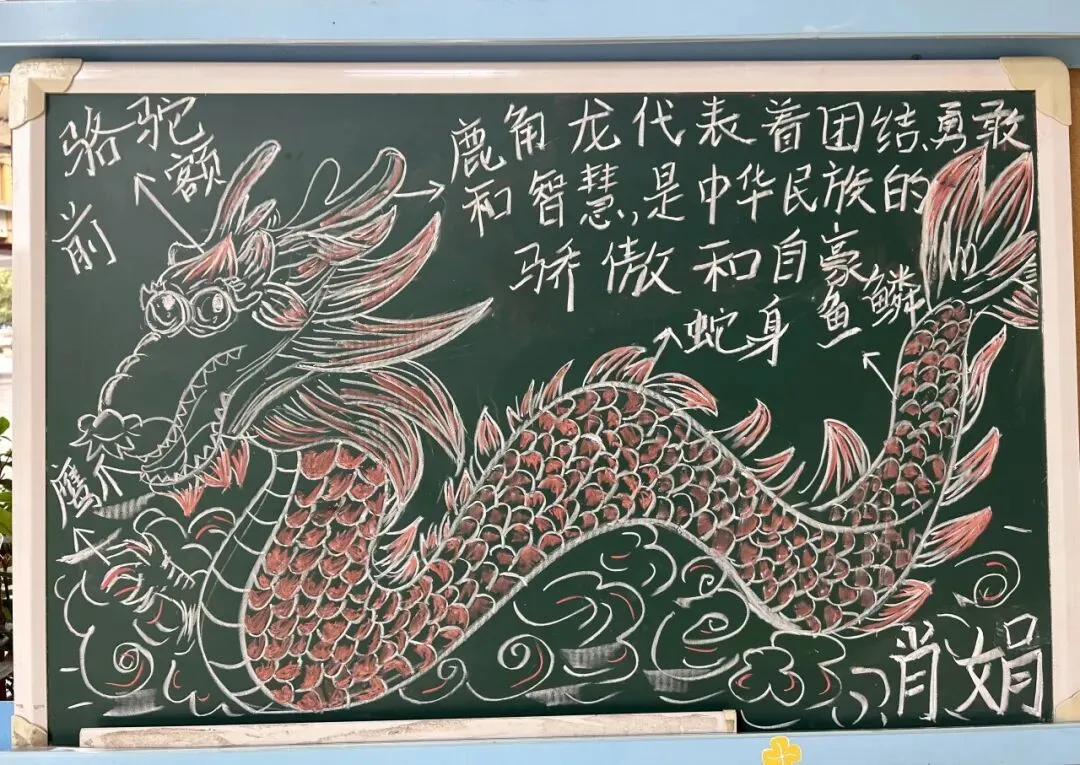 骆驼
前额
鹿角龙代表着团结勇敢
和智慧,是中华民族的
骄傲和自豪
蛇身
鱼鳞
鹰爪
肖娟